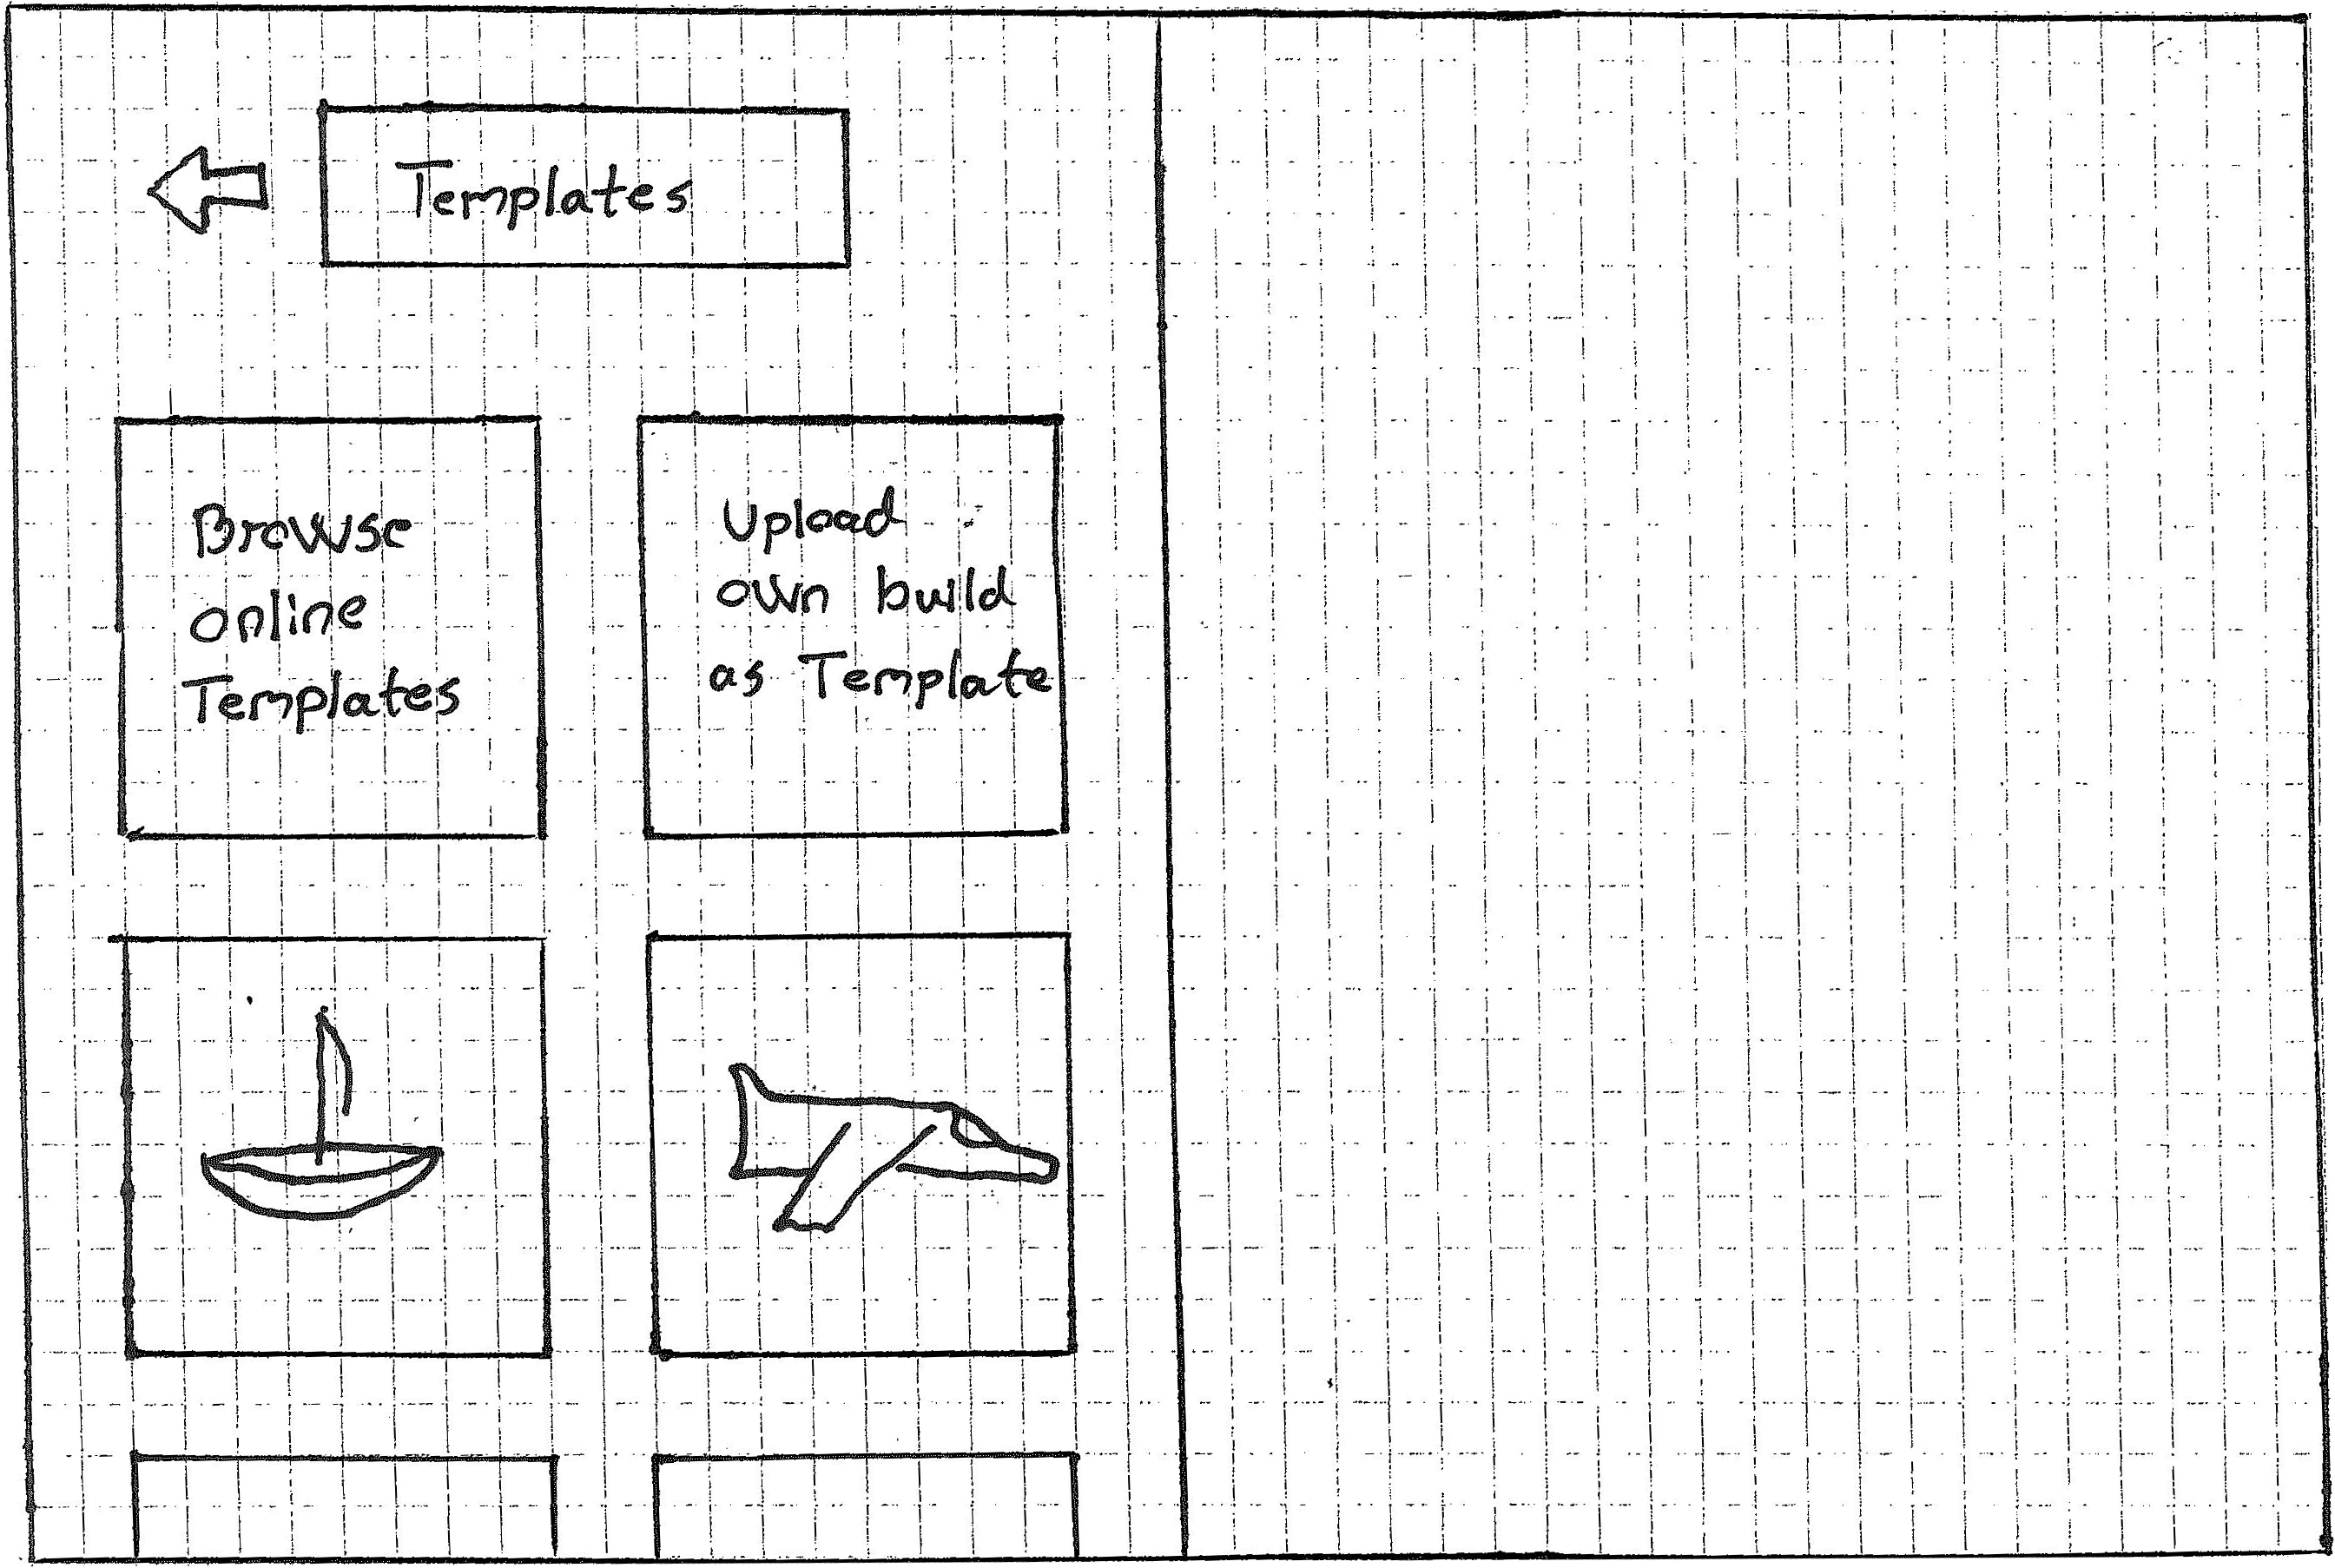 Templates
Browse
online
Templates
Upload
own build
as Template